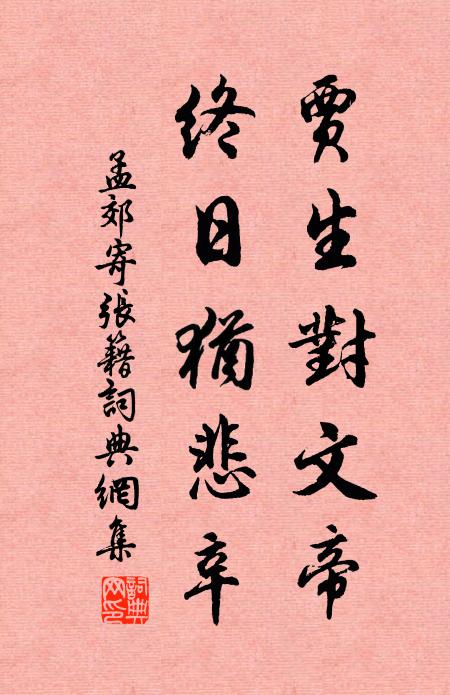 賈生對文帝
終日猶悲辛
孟郊寄張籍詞典網集
詞典
网印